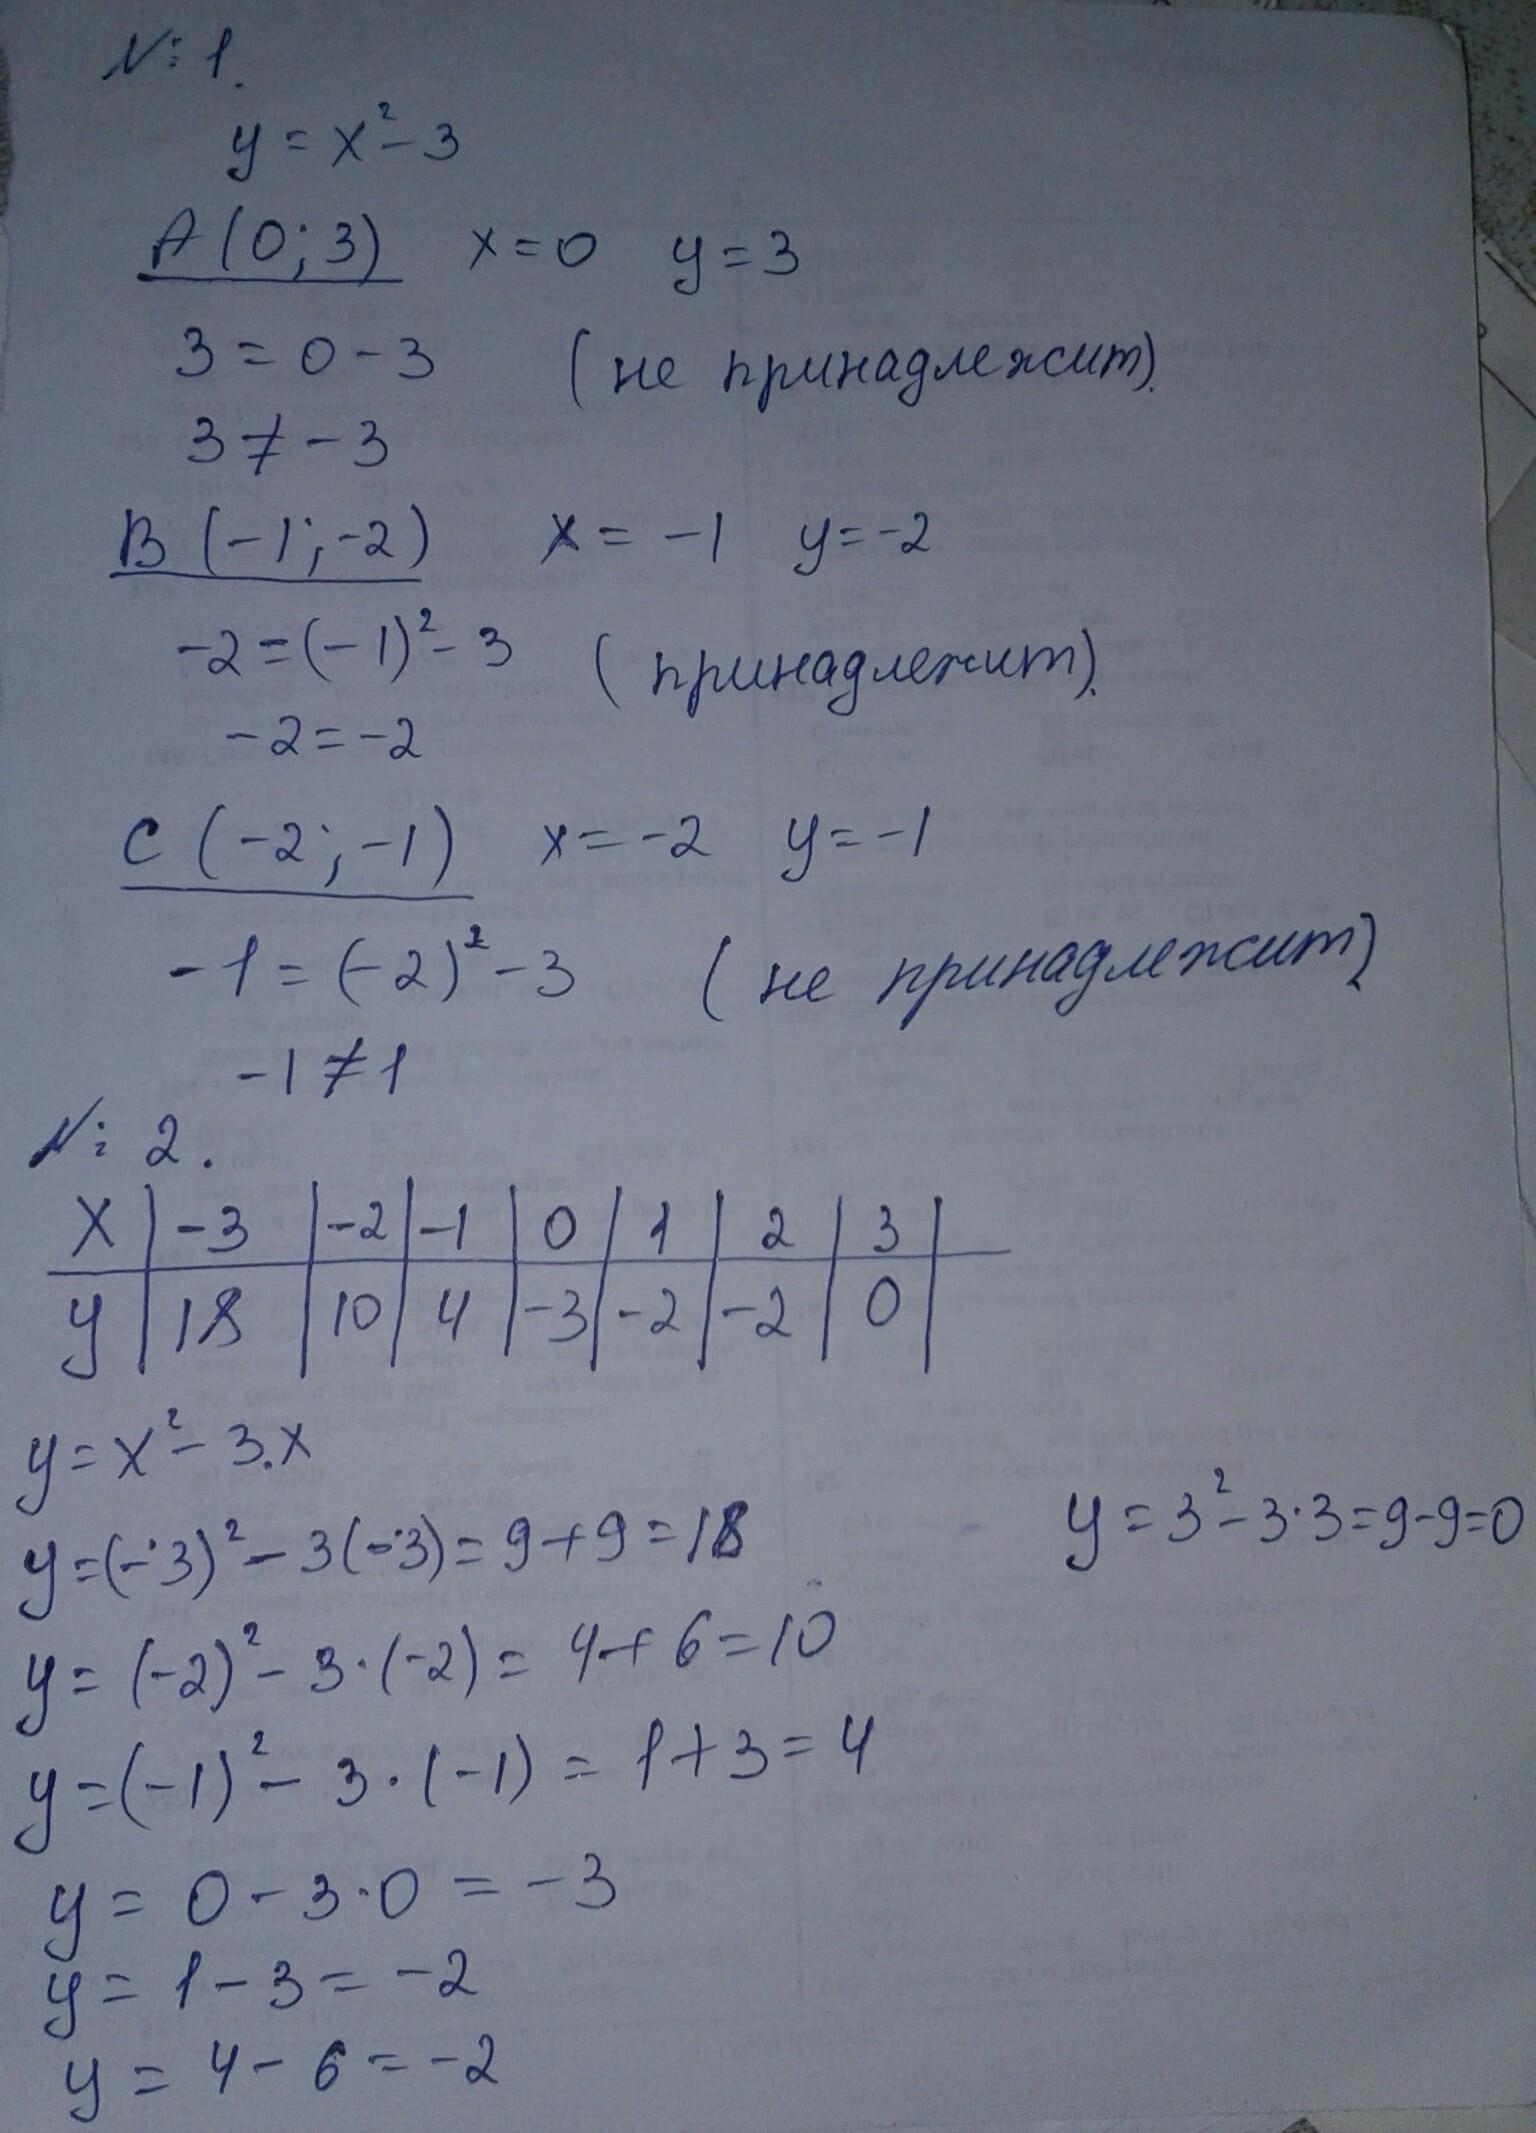 № 1.
y = x² - 3
A (0; 3) x = 0 y = 3
3 = 0 - 3 (не принадлежит).
3 ≠ - 3
B (-1; -2) x = -1 y = -2
-2 = (-1)² - 3 (принадлежит).
-2 = -2
C (-2; -1) x = -2 y = -1
-1 = (-2)² - 3 (не принадлежит)
-1 ≠ 1
№ 2.
X | -3 | -2 | -1 | 0 | 1 | 2 | 3 |
y | 18 | 10 | 4 | -3 | -2 | -2 | 0 |
y = x² - 3.x
y = (-3)² - 3(-3) = 9 + 9 = 18 y = 3² - 3·3 = 9 - 9 = 0
y = (-2)² - 3·(-2) = 4 + 6 = 10
y = (-1)² - 3·(-1) = 1 + 3 = 4
y = 0 - 3·0 = -3
y = 1 - 3 = -2
y = 4 - 6 = -2